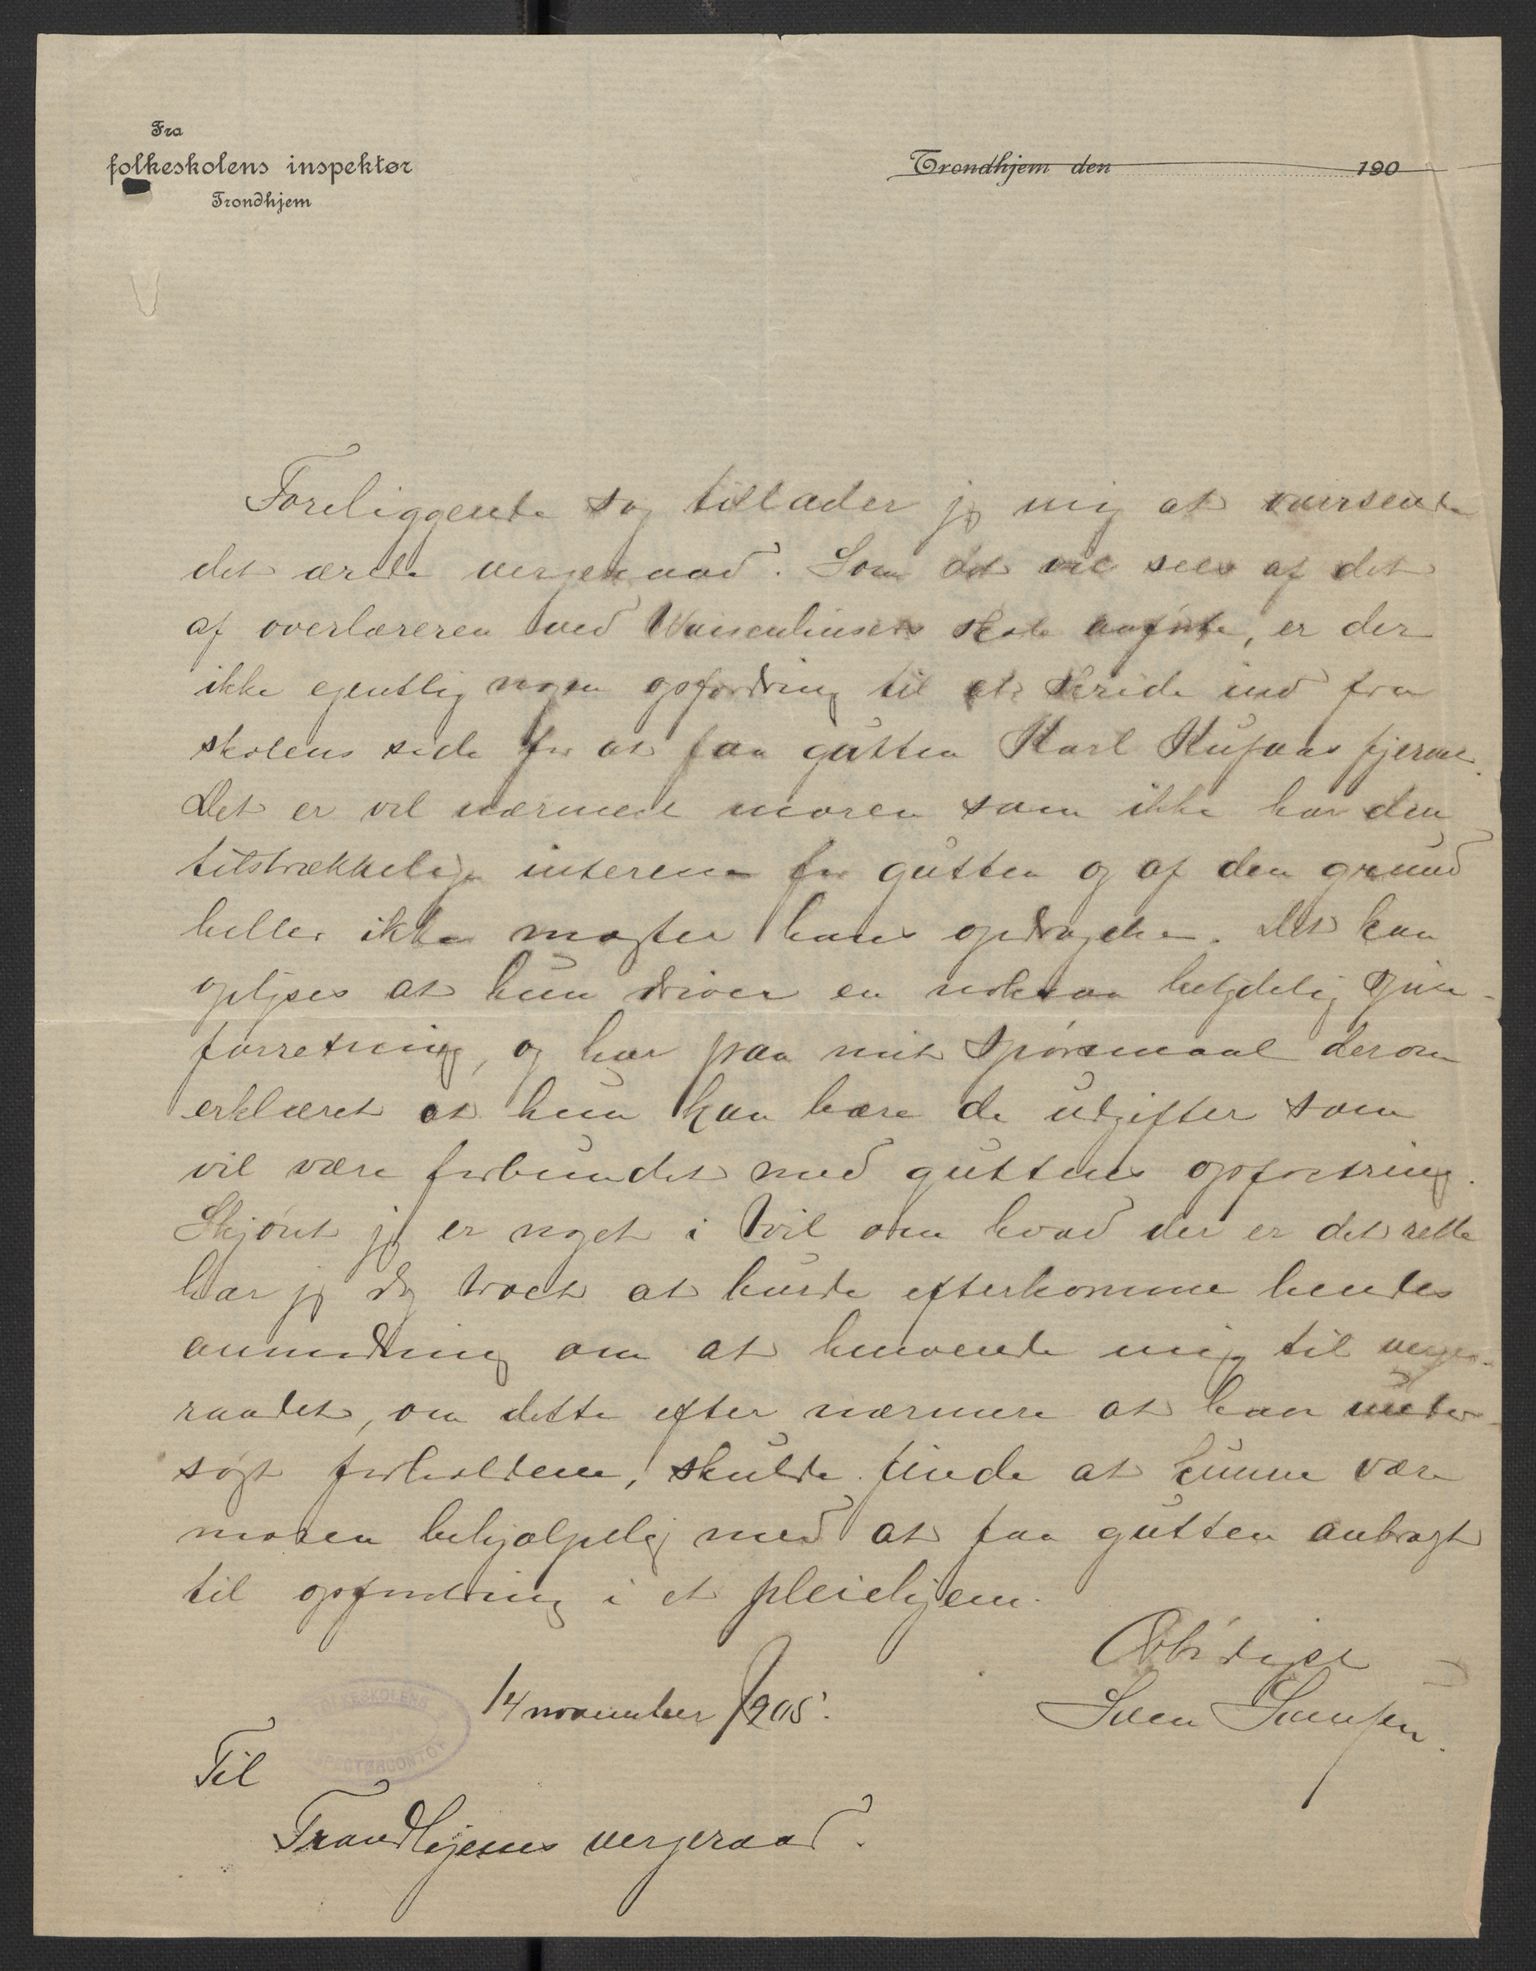 Fra
folkeskolens inspektør
Trondhjem
Trondhjem den 190
Foreliggende sag tillader jeg mig at oversende
det ærede vergeraad. Som det vil sees af det
af overlæreren ved Waisenhusets skole anførte, er der
ikke egentlig nogen opfordring til at skride ind fra
skolens side for at faa gutten Karl Kufaas fjernet.
Det er vel nærmest moren som ikke har den
tilstrækkelige interesse for gutten og af den grund
heller ikke magter hans opdragelse. Det kan
oplyses at hun driver en noksaa betydelig
forretning, og har paa mit spørsmaal derom
erklæret at hun kan bære de utgifter som
vil være forbundet med guttens opfostring.
Skjønt jeg er noget i tvil om hvad der er det rette
har jeg dog troet at burde efterkomme hendes
anmodning om at henvende mig til verge-
raadet, om dette efter nærmere at have under-
søgt forholdene, skulde finde at kunne være
moren behjælpelig med at faa gutten anbragt
til opfostring i et pleiehjem.
Ærbødigst
14 november 1905.
Sven Svensen.
FOLKESKOLENS
INSPECTØRCONTOR
Til
Trondhjems vergeraad.